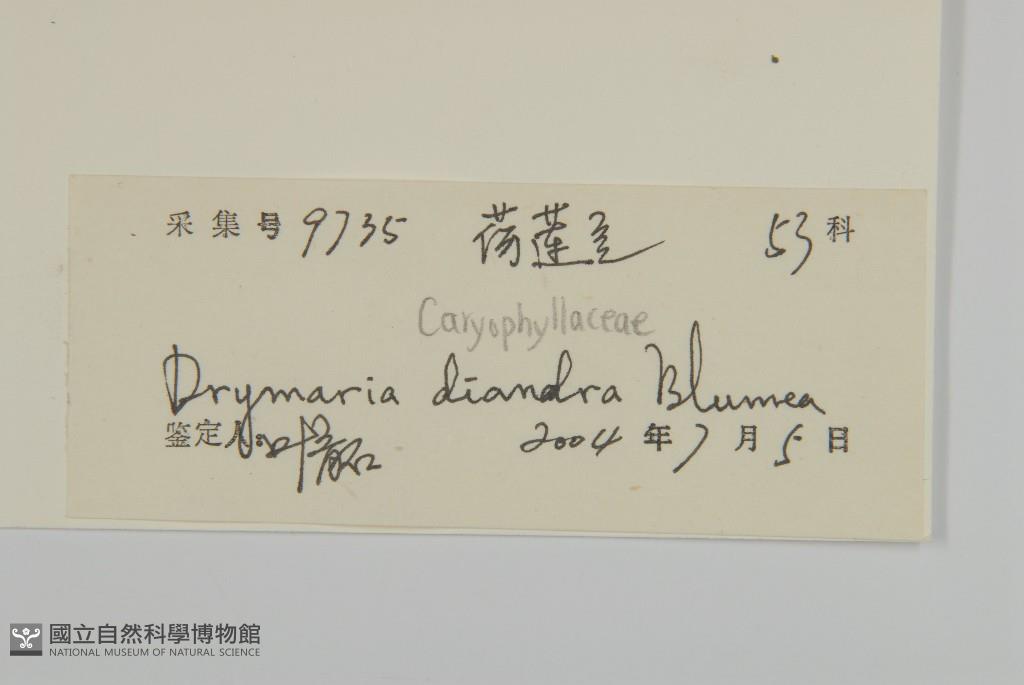 采集号 9735 荷莲豆 53 科
Caryophyllaceae
Drymaria diandra Blumea
鉴定人: 叶
2004 年 7 月 5 日
國立自然科學博物館
NATIONAL MUSEUM OF NATURAL SCIENCE